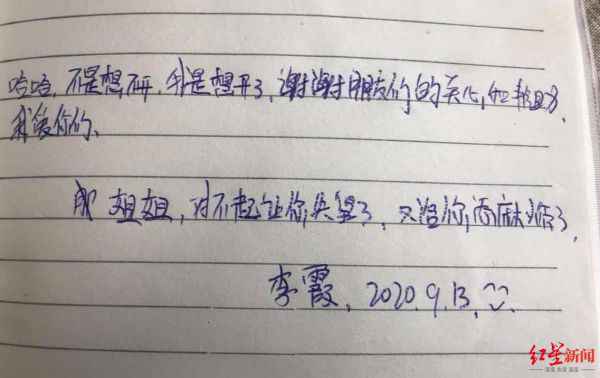 哈哈,不是想不开,我是想开了,谢谢朋友们的关心,
我爱你们、
姐姐,对不起让你失望了,又给你添麻烦了,
李霞、2020.9.13、
红星新闻